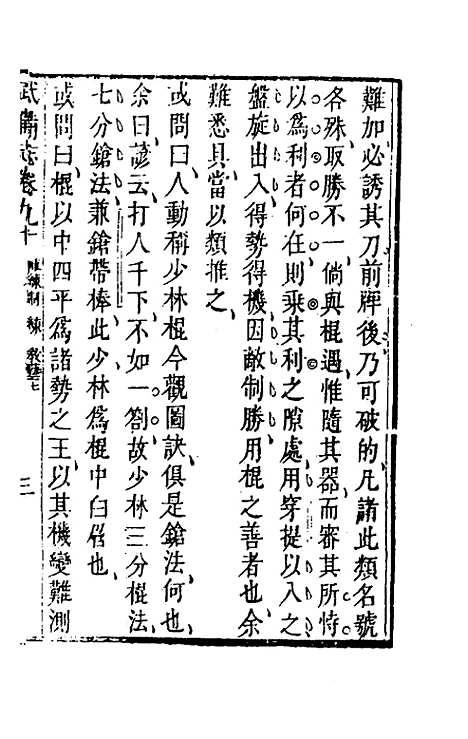 難加必誘其刀前牌後乃可破的凡諸此類名號
各殊取勝不一倘與棍遇惟隨其器而審其所恃
以為利者何在則乘其利之隙處用穿提以入之
盤旋出入得勢得機因敵制勝用棍之善者也余
難悉具當以類推之
或問曰人動稱少林棍今觀圖訣俱是鎗法何也
余曰諺云打人千下不如一劄故少林三分棍法
七分鎗法兼鎗帶棒此少林為棍中白眉也
或問曰棍以中四平為諸勢之王以其機變難測
武備志卷九十 陣練制 練 教藝七 三